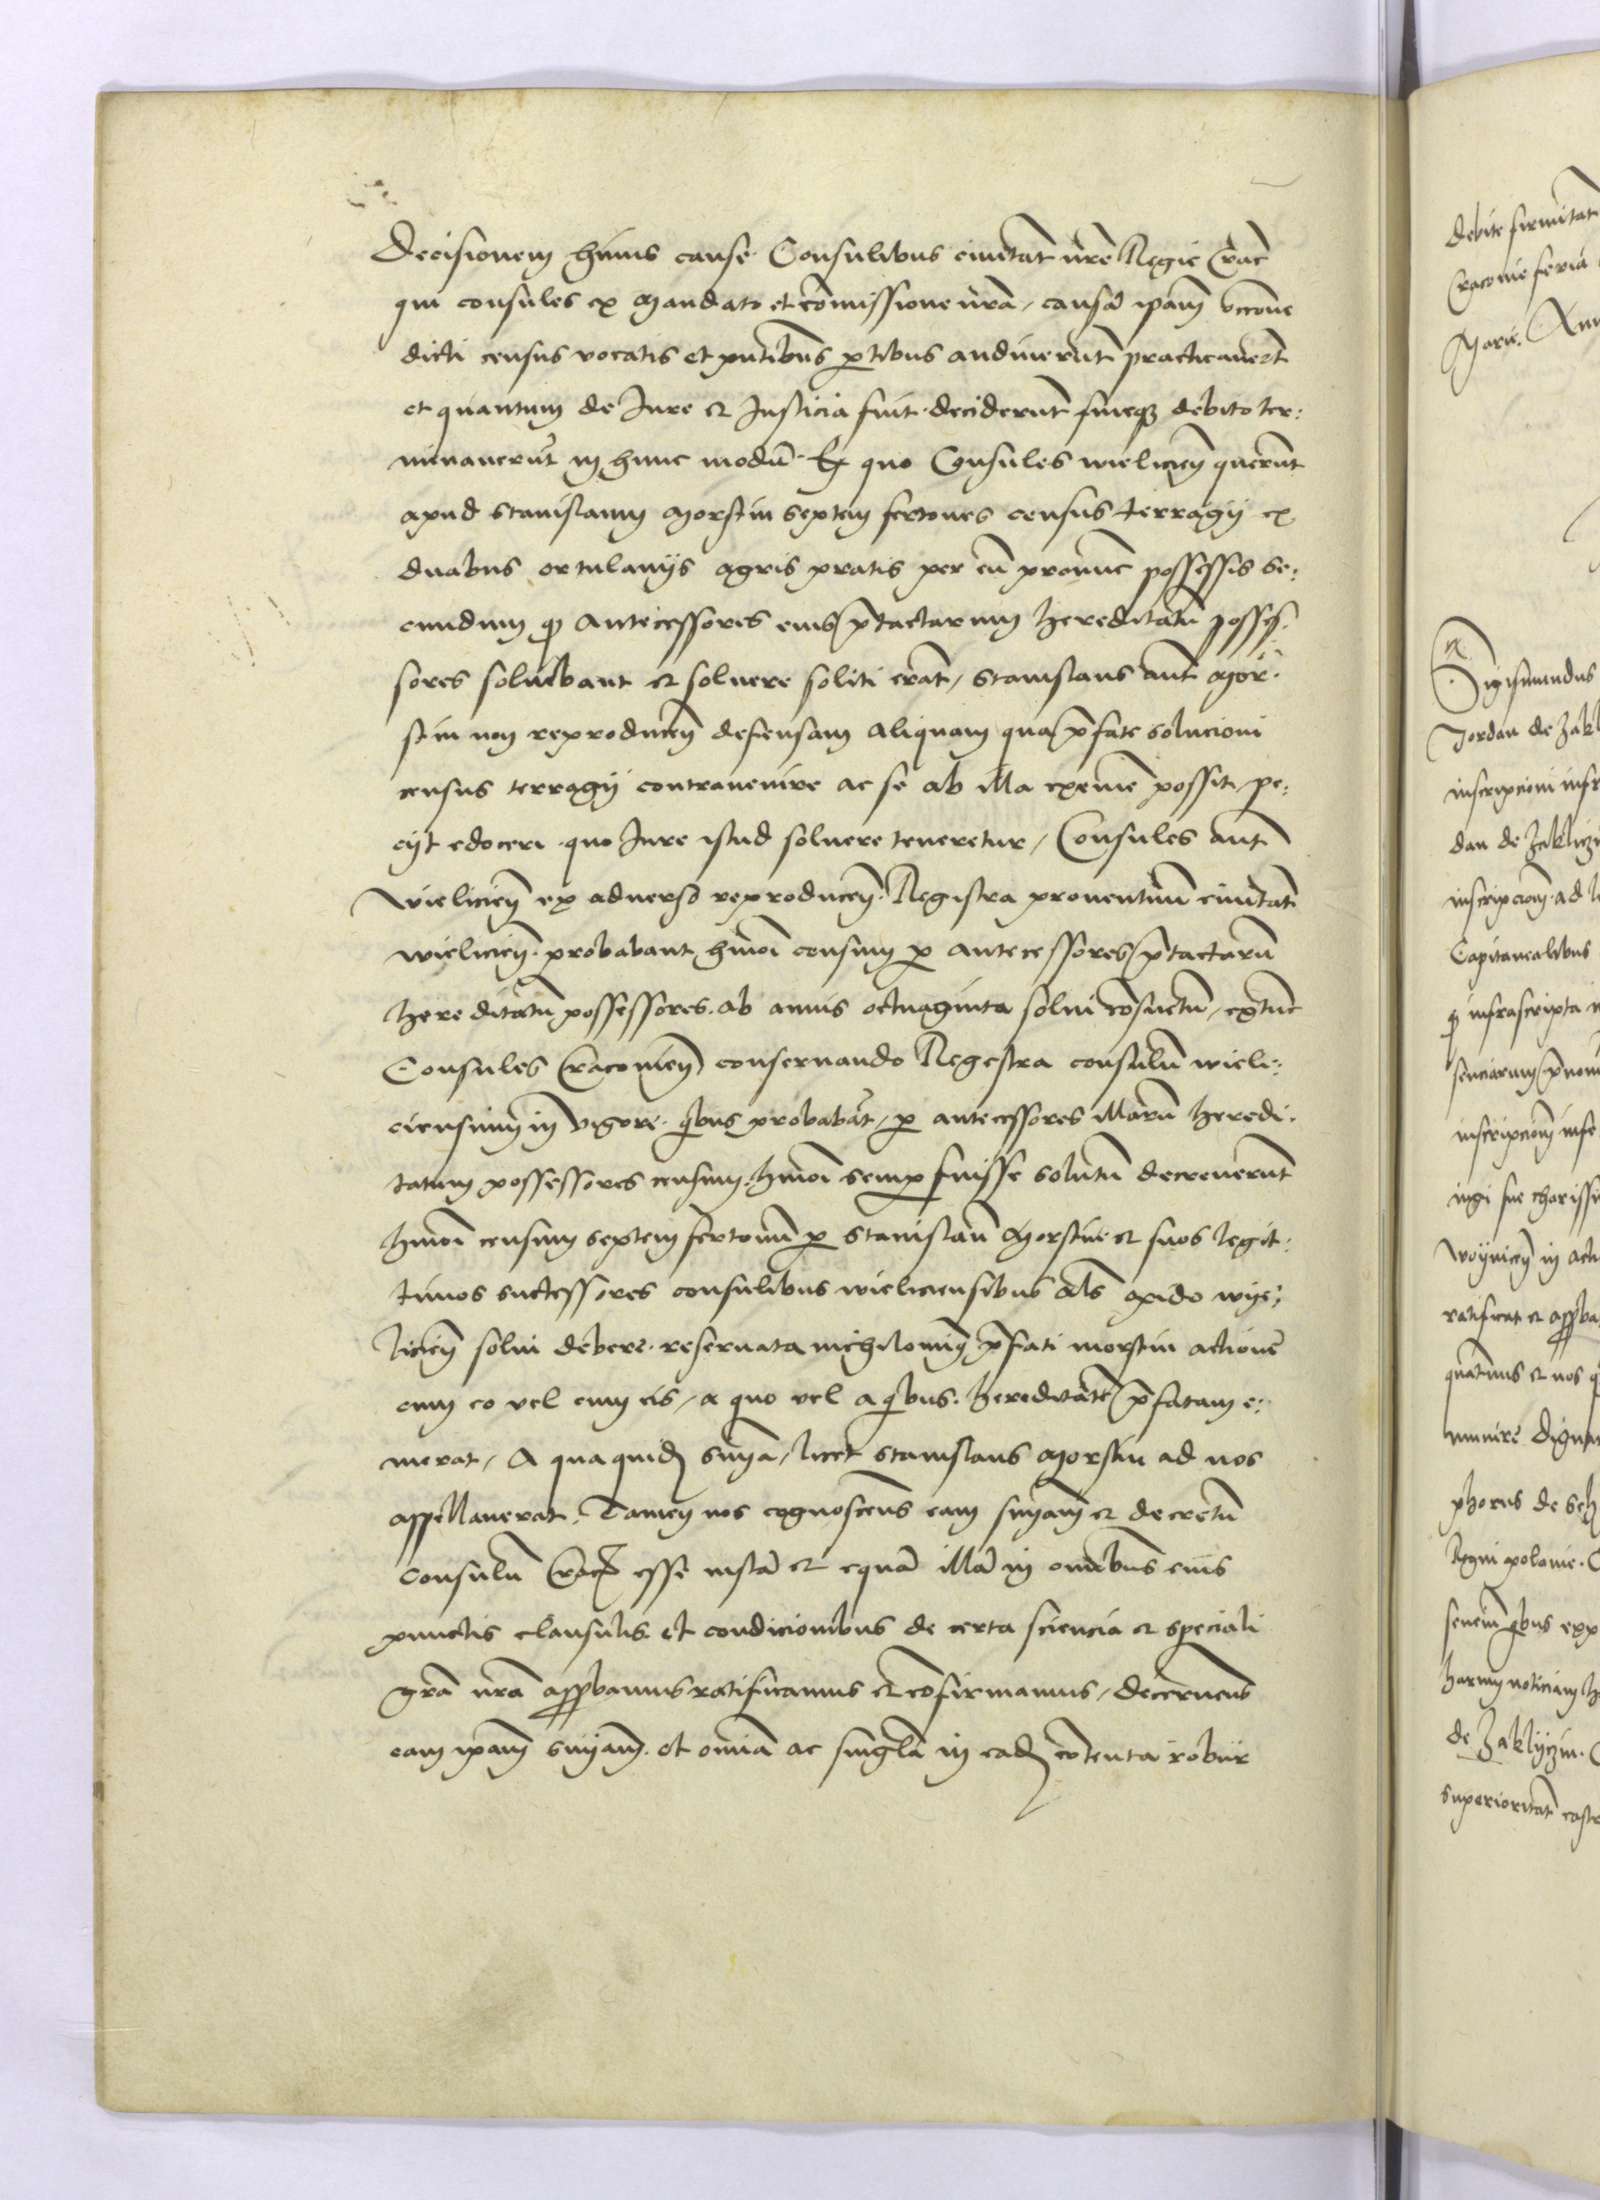 Decisionem huius cause Consulibus ciuitat nrẽ Regie Crac
qui consules ex Mandato et cõmissione nrã, causã ipam rõne
dicti census vocatis et pntibus ptibus audiuerũt practicauerũt
et quantum de Jure et Justicia fuit deciderũt fineqz debito ter:
minauerũt in hunc modũ Ex quo Consules wielicien querũt
apud Stanislaum Morstin septem fertones census terragy ex
duabus ortulanijs Agris pratis per eũ pronũc possessis se:
cundum qd Antecessores eius ptactarum hereditatũ posses:
sores soluebant et soluere soliti erãt, Stanislaus aut Mor:
stin non reproducen defensam Aliquam qua pfate solucioni
census terragij contrauenire ac se ab illa eximẽ possit pe:
cijt edoceri quo Jure istud soluere teneretur, Consules aut
wielicien ex aduerso reproducen Registra prouentuũ ciuitat
wielicien probabant hmoi censum p antecessores ptactarũ
hereditatũ possessores ab annis octuaginta solui cõsuetũ, extũc
Consules Cracouien conseruando Regestra consulũ wieli:
ciensium in vigore qbus probabãt, p antecessores illarũ heredi:
tatum possessores censum hmoi semp fuisse solutũ decreuerũt
hmoi censum septem fertonũ p Stanislaũ Morstin et suos legit:
timos successores consulibus wieliciensibus als opido wye:
licien solui debere reseruata nichilominq pfati morstin actione
cum eo vel cum eis, a quo vel a qbus hereditatẽ pfatam e:
merat, A qua quidẽ sniã, licet Stanislaus Morstin ad nos
appellauerat, Tamen nos cognoscens eam sniam et decretũ
consulũ Crac esse iustã et equã illã in omĩbus eius
punctis clausulis et condicionibus de certa sciencia et speciali
grã nrã approbamus ratificamus et cõfirmamus, decernens
eam ipam sniam et omĩa ac singlã in eadẽ cõtenta robur
debite firmitat
Cracouie feria
Marie Ann
Sigismundus
Jordan de Zakl
inscripcioni infr
dan de Zakliczi
inscripcion ad
Capitanealibus
qd infrascripta
inscripcion infr
woynicen in act
ratificat et approba
quatinus et nos
munire Dignar
phorus de
Regni polonie
harum noticiam
de Zaklyczin
superioritat castr